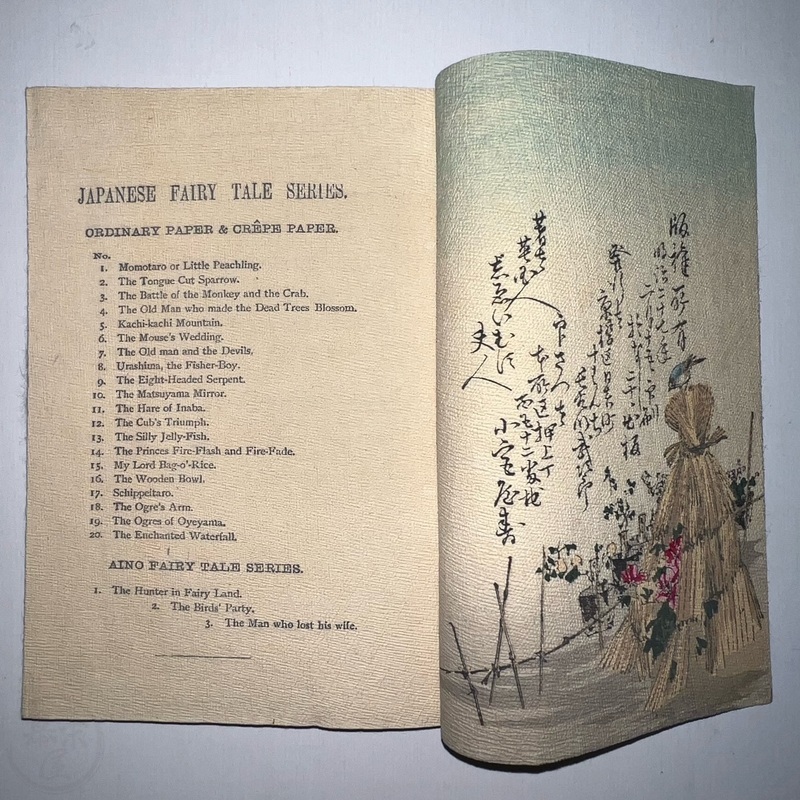 JAPANESE FAIRY TALE SERIES.
ORDINARY PAPER & CRÊPE PAPER.
No.
1. Momotaro or Little Peachling.
2. The Tongue Cut Sparrow.
3. The Battle of the Monkey and the Crab.
4. The Old Man who made the Dead Trees Blossom.
5. Kachi-kachi Mountain.
6. The Mouse's Wedding.
7. The Old man and the Devils.
8. Urashima, the Fisher-Boy.
9. The Eight-Headed Serpent.
10. The Matsuyama Mirror.
11. The Hare of Inaba.
12. The Cub's Triumph.
13. The Silly Jelly-Fish.
14. The Princes Fire-Flash and Fire-Fade.
15. My Lord Bag-o'-Rice.
16. The Wooden Bowl.
17. Schippeitaro.
18. The Ogre's Arm.
19. The Ogres of Oyeyama.
20. The Enchanted Waterfall.
AINO FAIRY TALE SERIES.
1. The Hunter in Fairy Land.
2. The Birds' Party.
3. The Man who lost his wife.
版権所有
明治二十七年
二十日出板
発行者
京橋区日吉町
十番地
長谷川武次郎
印さつ者
本所区押上丁
百七十二番地
小宮屋寿
著者
英国人
夫人